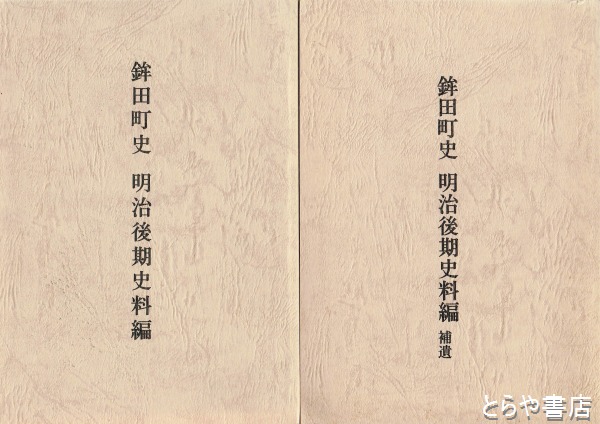 鉾田町史 明治後期史料編
鉾田町史 明治後期史料編 補遺
とらや書店